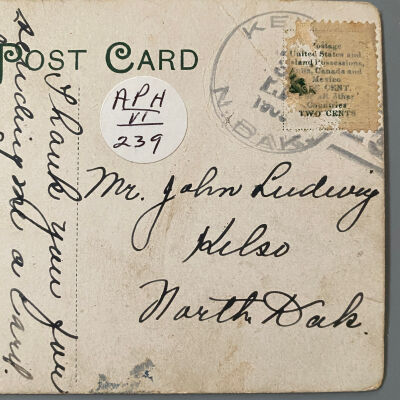 POST CARD
Thank you for
sending me a Card.
APH
VI
239
KE
N. DAK.
190
Postage
United States and
Island Possessions,
Canada and
Mexico
CENT.
other
Countries
TWO CENTS
Mr. John Ludwig
Kelso
North Dak.